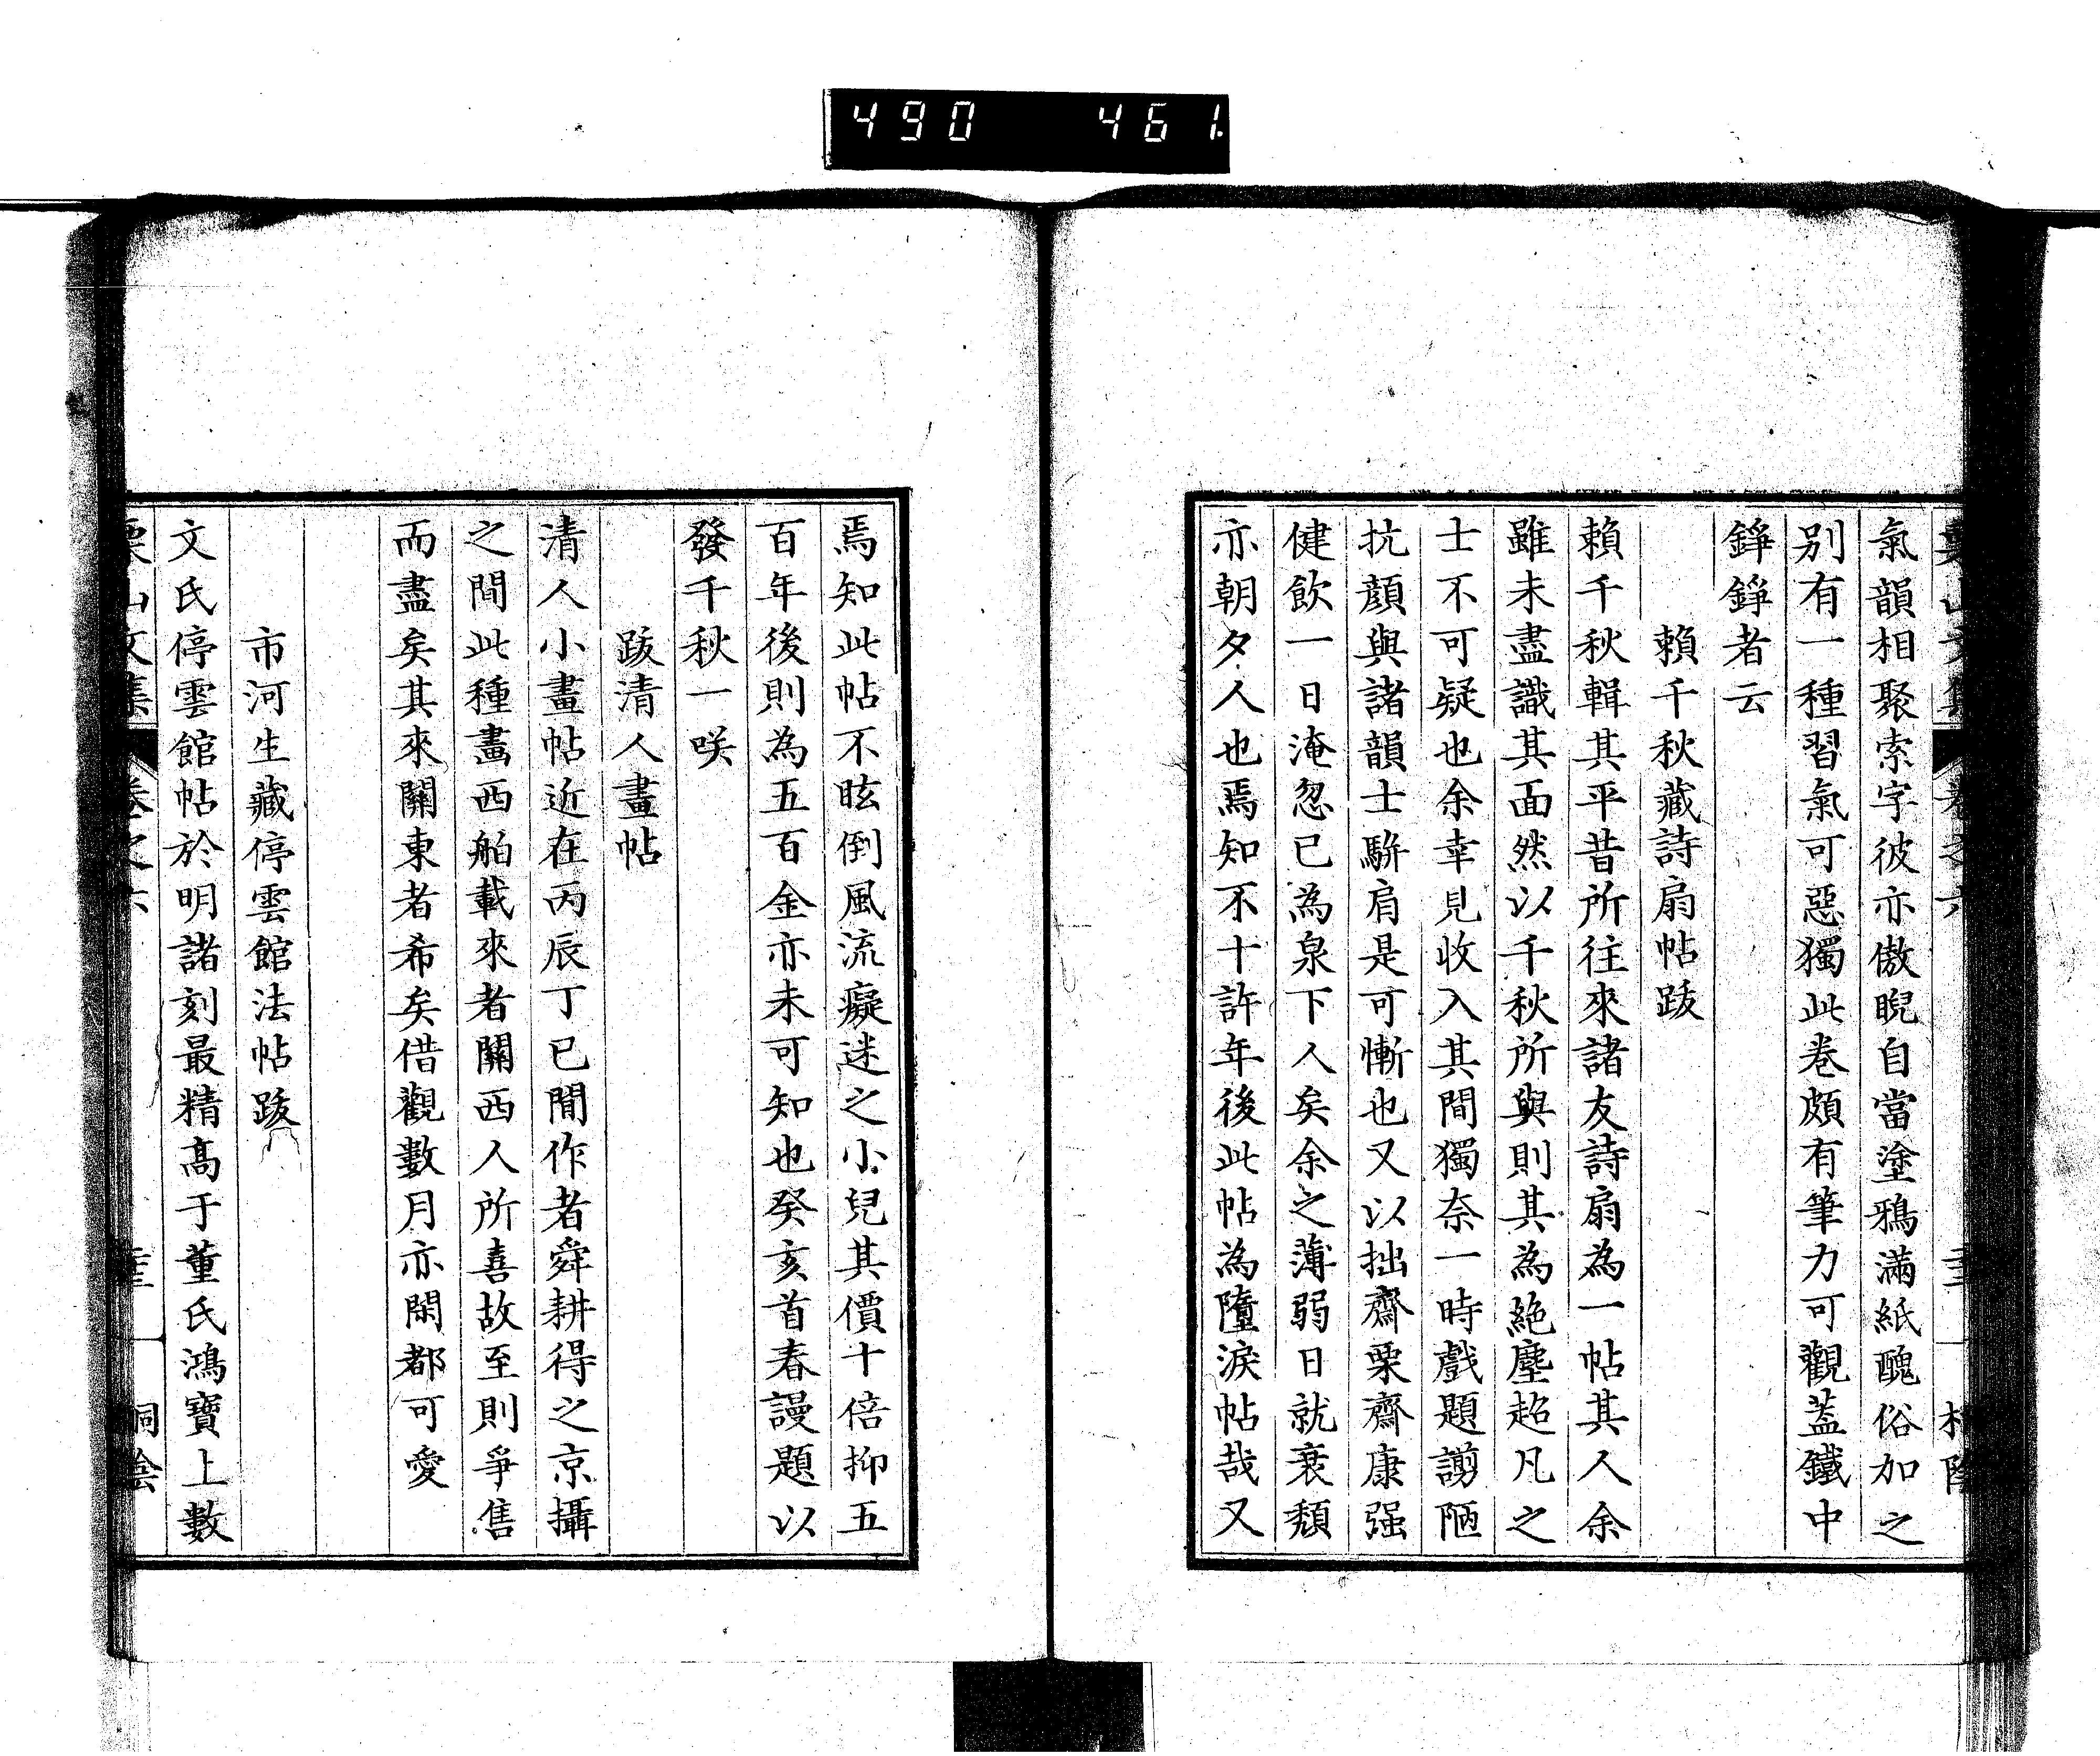 490 461
氣韻相聚索字彼亦傲睨自當塗鴉滿紙醜俗加之
別有一種習氣可惡獨此卷頗有筆力可觀蓋鐵中
錚錚者云
賴千秋藏詩扇帖跋
賴千秋輯其平昔所往來諸友詩扇為一帖其人余
雖未盡識其面然以千秋所與則其為絶塵超凡之
士不可疑也余幸見收入其間獨奈一時戲題謭陋
抗顔與諸韻士駢肩是可慚也又以拙齋栗齋康强
健飲一日淹忽已為泉下人矣余之薄弱日就衰頽
亦朝夕人也焉知不十許年後此帖為墮淚帖哉又
焉知此帖不眩倒風流癡迷之小兒其價十倍抑五
百年後則為五百金亦未可知也癸亥首春謾題以
發千秋一咲
跋清人畫帖
清人小畫帖近在丙辰丁巳間作者舜耕得之京攝
之間此種畫西舶載來者關西人所喜故至則爭售
而盡矣其來關東者希矣借觀數月亦閑都可愛
市河生藏停雲館法帖跋
文氏停雲館帖於明諸刻最精高于董氏鴻寶上數
栗山文集 卷之六
桐陰